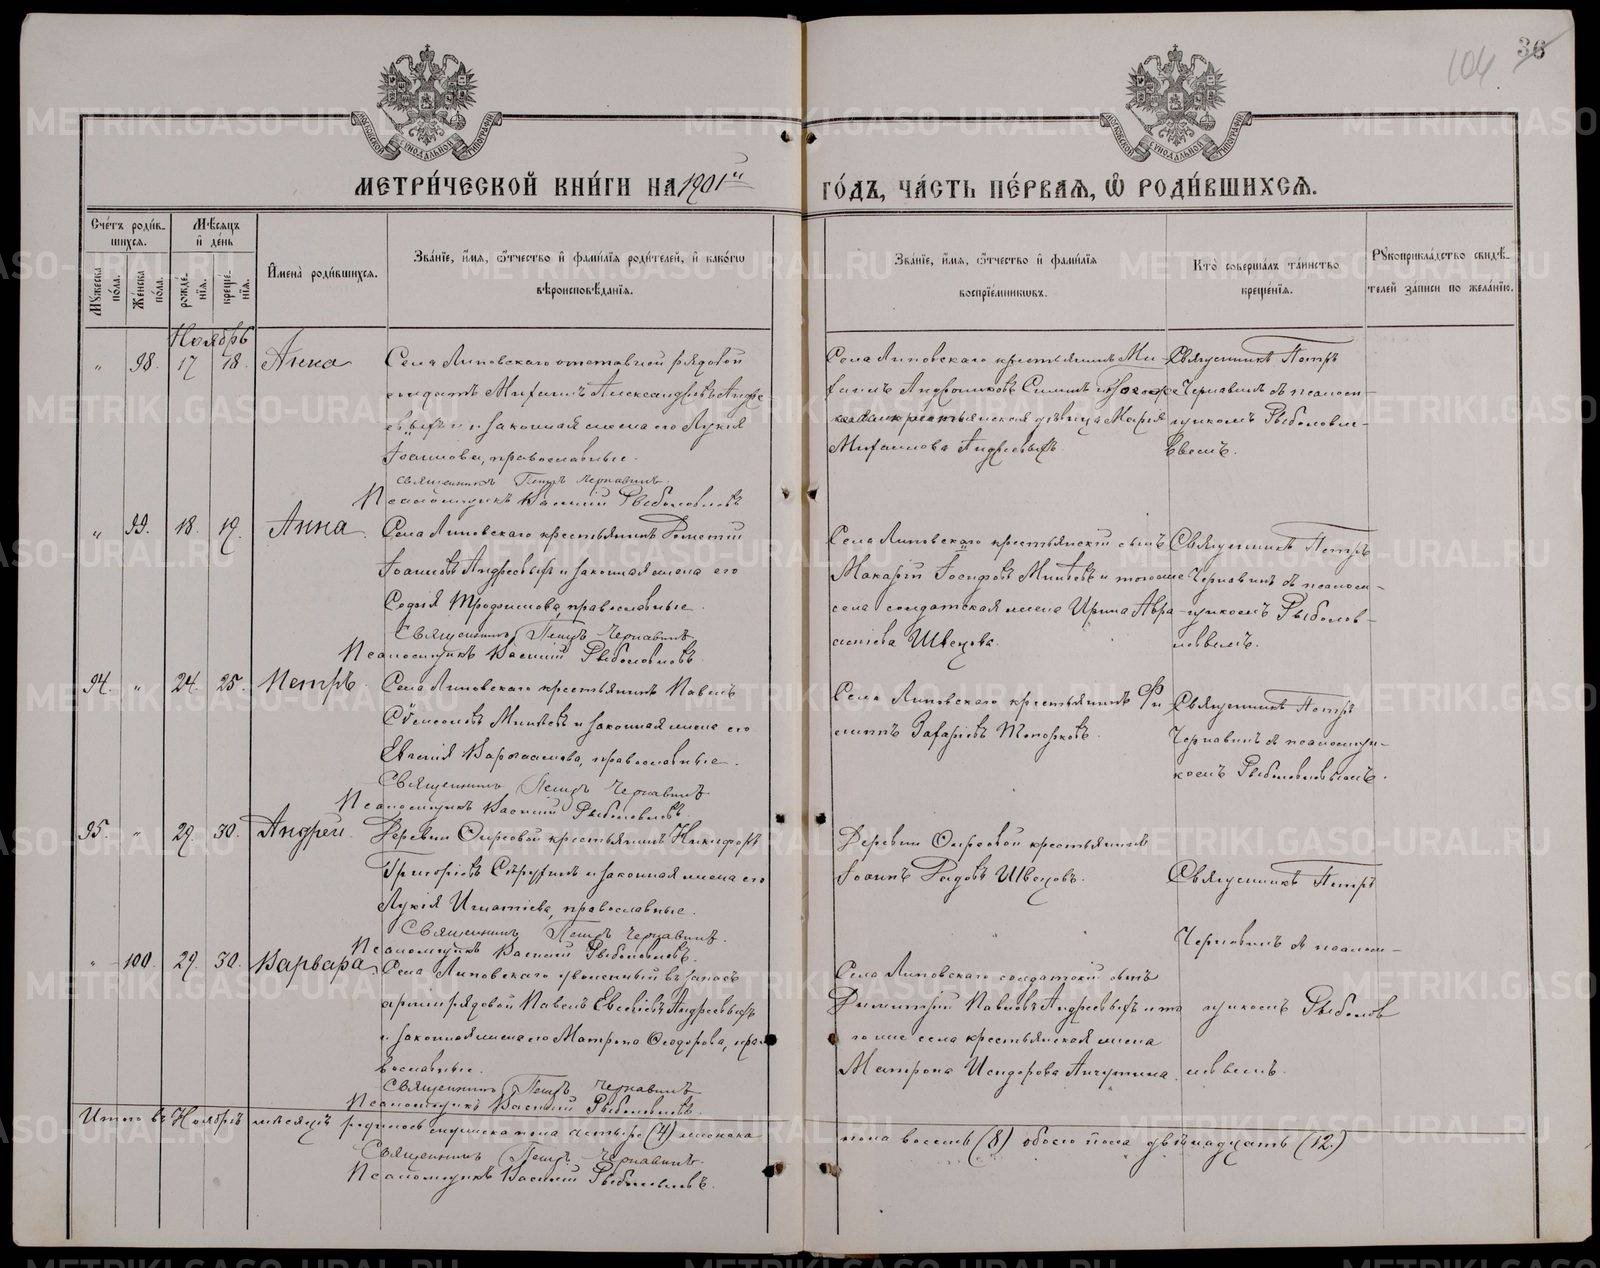 104 36
МОСКОВСКОЙ СѴНОДАЛЬНОЙ ТИПОГРАФІИ
МОСКОВСКОЙ СѴНОДАЛЬНОЙ ТИПОГРАФІИ
МЕТРИ́ЧЕСКОЙ КНИ́ГИ НА 1901й ГО́ДЪ, ЧА́СТЬ ПЕ́РВАЯ, Ѽ РОДИ́ВШИХСЯ.
Сче́тъ роди́вшихся.
Мꙋ́жеска по́ла.
Же́нска по́ла.
Мѣ́сяцъ и де́нь
рожде́нїя.
креще́нїя.
И́мена роди́вшихся.
Зва́нїе, и́мя, ѻ҆́тчество и фами́лїя роди́телей, и како́гѡ
вѣроисповѣ́данїя.
Зва́нїе, и́мя, ѻ҆́тчество и фами́лїя
воспрїе́мникѡвъ.
Кто̀ соверша́лъ та́инство
креще́нїя.
Рꙋкоприкла́дство свидѣ́-
телей за́писи по жела́нїю.
Ноябрь
" 98. 17 18. Анна
Села Липовскаго отставной рядовой
солдатъ Михаилъ Александровъ Андре
евыхъ и законная жена его Лукія
Іоаннова, православные.
Священникъ Петръ Чернавинъ.
Псаломщикъ Василій Рыболовлевъ
Села Липовскаго крестьянинъ Ми-
хаилъ Андрониковъ
крестьянская дѣвица Марія
Михаилова Андреевыхъ.
Священникъ Петръ
Чернавинъ съ псалом-
щикомъ Рыболовле-
вымъ.
" 99. 18. 19. Анна
Села Липовскаго крестьянинъ
Іоанновъ Андреевыхъ и законная жена его
Софія Трофимова, православные.
Священникъ Петръ Чернавинъ
Псаломщикъ Василій Рыболовлевъ.
Села Липовскаго крестьянскій сынъ
Макарій Іосифовъ Минѣевъ и тогоже
села солдатская жена Ирина Авра-
аміева Швецова.
Священникъ Петръ
Чернавинъ съ псалом-
щикомъ Рыболов-
левымъ.
94. " 24. 25. Петръ.
Села Липовскаго крестьянинъ Павелъ
Минѣевъ и законная жена его
Евгенія Варлаамова, православные.
Священникъ Петръ Чернавинъ
Псаломщикъ Василій Рыболовлевъ
Села Липовскаго крестьянинъ Фи
липпъ Захаровъ Топорковъ.
Священникъ Петръ
Чернавинъ съ псаломщи-
комъ Рыболовлевымъ.
95. " 29. 30. Андрей.
Деревни крестьянинъ Никифоръ
Григорьевъ и законная жена его
Лукія Игнатіева, православные.
Священникъ Петръ Чернавинъ.
Псаломщикъ Василій Рыболовлевъ.
Деревни крестьянинъ
Іоаннъ Швецовъ.
Священникъ Петръ
Чернавинъ съ псалом-
" 100. 29. 30. Варвара
Села Липовскаго уволенный въ запасъ
арміи рядовой Павелъ Евсеевъ Андреевыхъ
и законная жена его Матрона Ѳеодорова, пра-
вославные.
Священникъ Петръ Чернавинъ
Псаломщикъ Василій Рыболовлевъ.
Села Липовскаго солдатскій сынъ
Димитрій Павловъ Андреевыхъ и то
гоже села крестьянская жена
Матрона Исидорова
щикомъ Рыболов
левымъ.
Итого въ Ноябрѣ мѣсяцѣ родилось мужеска пола четыре (4) женска пола восемь (8) обоего пола двѣнадцать (12.)
Священникъ Петръ Чернавинъ.
Псаломщикъ Василій Рыболовлевъ.
METRIKI.GASO-URAL.RU